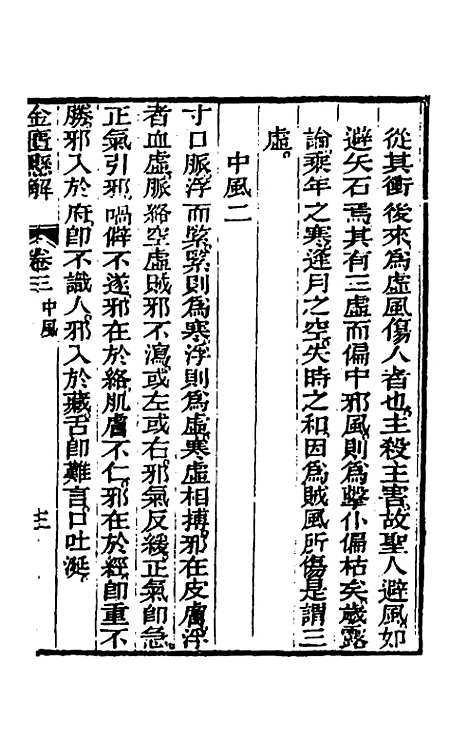 從其衝後來爲虛風傷人者也主殺主害故聖人避風如
避矢石焉其有三虛而偏中邪風則爲擊仆偏枯矣歲露
論乘年之寒逢月之空失時之和因爲賊風所傷是謂三
虛
中風二
寸口脈浮而緊緊則爲寒浮則爲虛寒虛相搏邪在皮膚浮
者血虛脈絡空虛賊邪不瀉或左或右邪氣反緩正氣即急
正氣引邪喎僻不遂邪在於絡肌膚不仁邪在於經即重不
勝邪入於府即不識人邪入於藏舌即難言口吐涎
金匱懸解 卷三 中風